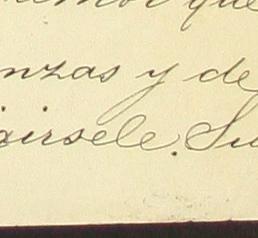 que
nzas y de
irsele. Su